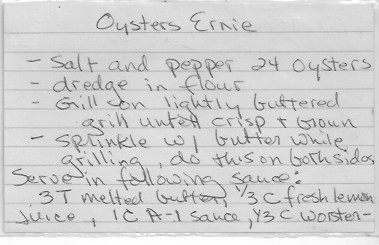 Oysters Ernie
- Salt and pepper 24 oysters
- dredge in flour
- Grill on lightly buttered
grill until crisp + brown
- sprinkle w/ butter while
grilling, do this on both sides
Serve in following sauce:
3T melted butter, 1/3 C fresh lemon
juice, 1C A-1 sauce, 1/3 C worster-